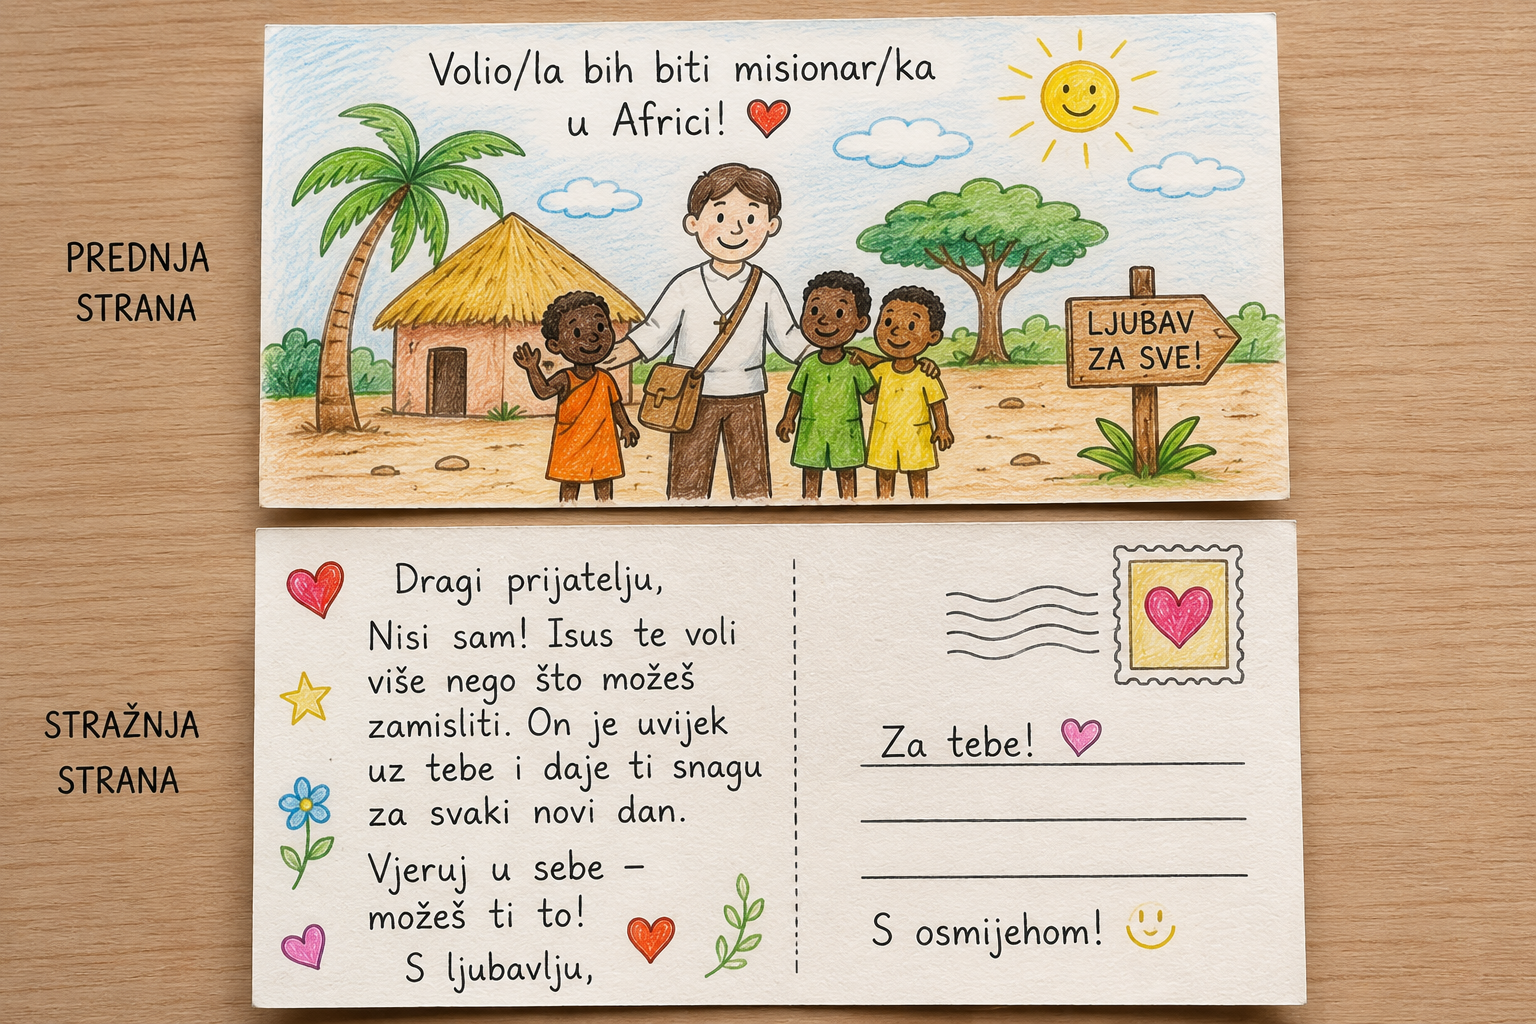 PREDNJA
STRANA
Volio/la bih biti misionar/ka
u Africi!
LJUBAV
ZA SVE!
STRAŽNJA
STRANA
Dragi prijatelju,
Nisi sam! Isus te voli
više nego što možeš
zamisliti. On je uvijek
uz tebe i daje ti snagu
za svaki novi dan.
Vjeruj u sebe –
možeš ti to!
S ljubavlju,
Za tebe!
S osmijehom!